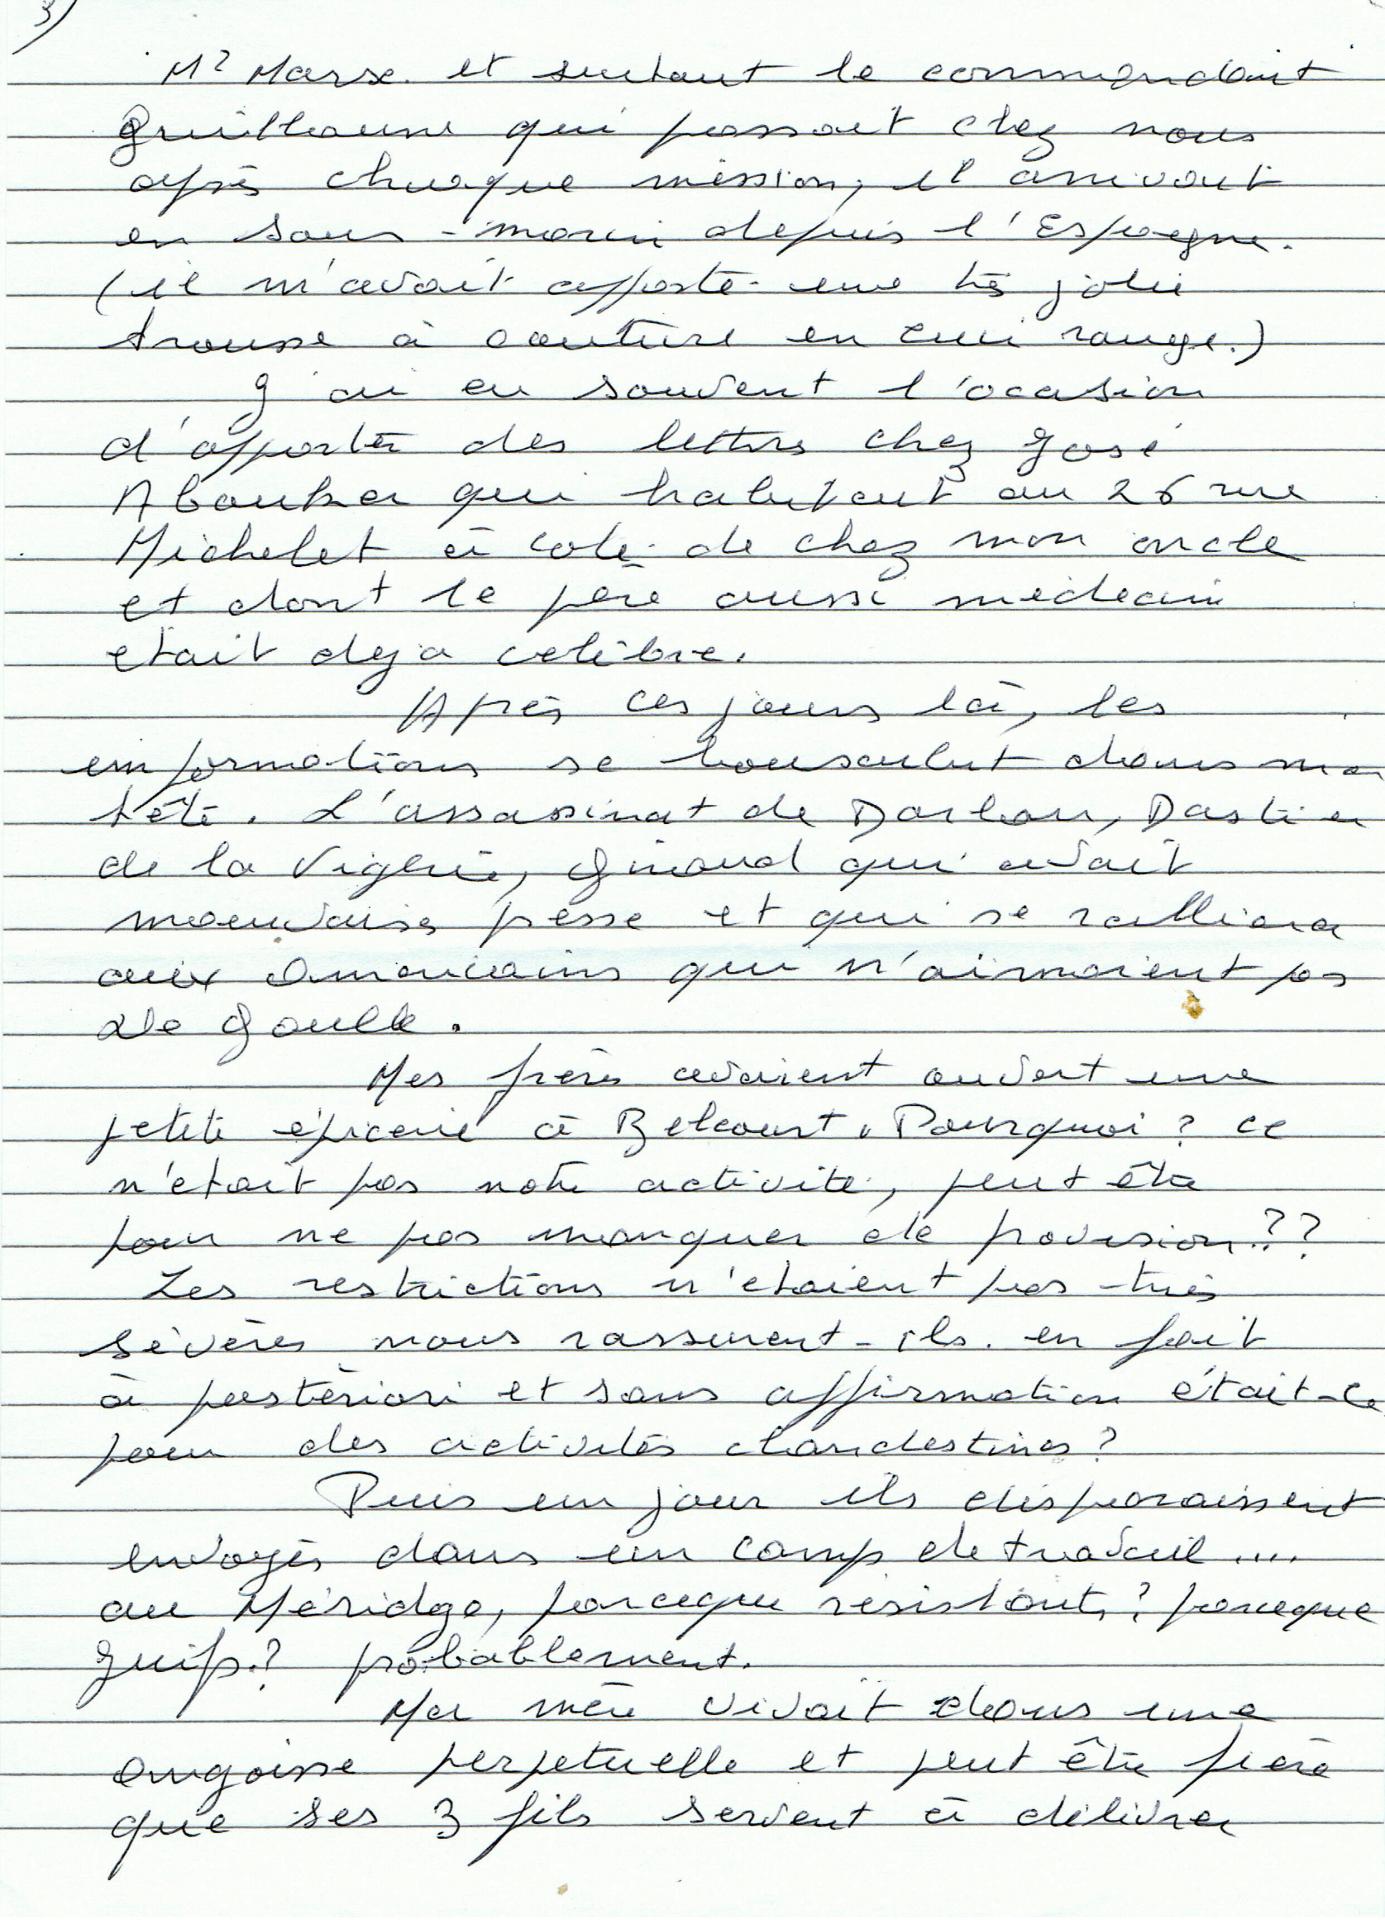 3)
Mr Marx. et surtout le commandant
Guillaume qui passait chez nous
après chaque mission, il arrivait
en sous-marin depuis l'Espagne.
(il m'avait apporté une très jolie
trousse à couture en cuir rouge.)
J'ai eu souvent l'ocasion
d'apporter des lettres chez José
Aboulker qui habitait au 26 rue
Michelet à coté de chez mon oncle
et dont le père aussi médecin
etait deja celèbre.
Après ces jours là, les
informations se bousculent dans ma
tête. L'assassinat de Darlan, Dastier
de la Vigerie, Giraud qui avait
mauvaise presse et qui se ralliera
aux Américains qui n'aimaient pas
De Gaulle.
Mes frères avaient ouvert une
petite épicerie à Belcourt. Pourquoi? ce
n'etait pas notre activité, peut être
pour ne pas manquer de provision??
Les restrictions n'etaient pas très
sévères nous rassurent-ils. en fait
à postériori et sans affirmation était-ce
pour des activités clandestines?
Puis un jour ils disparaissent
envoyés dans un camp de travail ....
au Méridja, parceque résistants? parceque
juifs? probablement.
Ma mère vivait dans une
angoisse perpetuelle et peut être fière
que ses 3 fils servent à délivrer